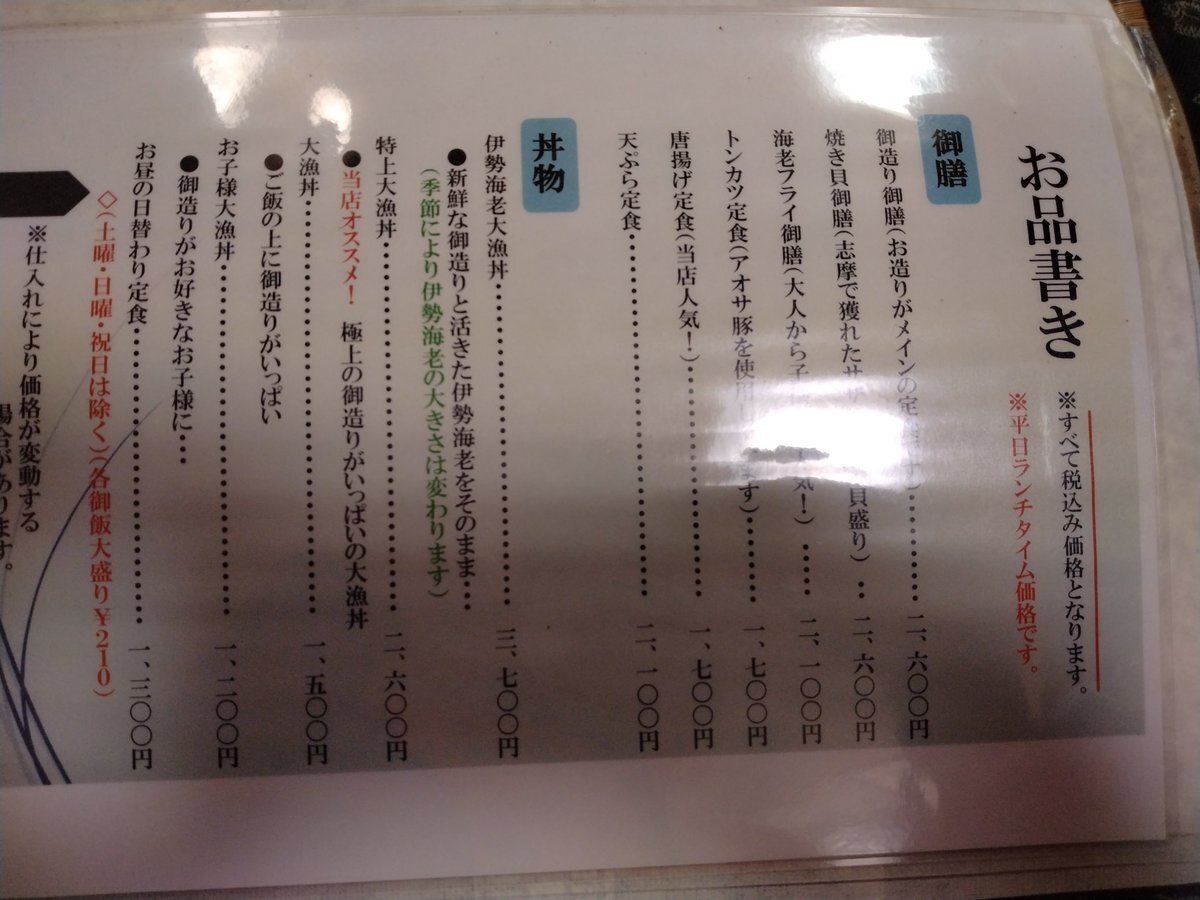 お品書き
※すべて税込み価格となります。
※平日ランチタイム価格です。
御膳
御造り御膳(お造りがメインの定 )・・・・・・二、六〇〇円
焼き貝御膳(志摩で獲れたサザ 貝盛り)・・二、六〇〇円
海老フライ御膳(大人から子 気！)・・・・二、一〇〇円
トンカツ定食(アオサ豚を使用 ます)・・・・・・一、七〇〇円
唐揚げ定食(当店人気！)・・・・・・・・・・・・・・・・一、七〇〇円
天ぷら定食・・・・・・・・・・・・・・・・・・・・・・・・・二、一〇〇円
丼物
伊勢海老大漁丼・・・・・・・・・・・・・・・・・・・・・・三、七〇〇円
●新鮮な御造りと活きた伊勢海老をそのまま・・・
(季節により伊勢海老の大きさは変わります)
特上大漁丼・・・・・・・・・・・・・・・・・・・・・・・・・二、六〇〇円
●当店オススメ！ 極上の御造りがいっぱいの大漁丼
大漁丼・・・・・・・・・・・・・・・・・・・・・・・・・・・・一、五〇〇円
●ご飯の上に御造りがいっぱい
お子様大漁丼・・・・・・・・・・・・・・・・・・・・・・・一、二〇〇円
●御造りがお好きなお子様に・・・
お昼の日替わり定食・・・・・・・・・・・・・・・・・・・一、三〇〇円
◇(土曜・日曜・祝日は除く)(各御飯大盛り￥210)
※仕入れにより価格が変動する
場合があります。